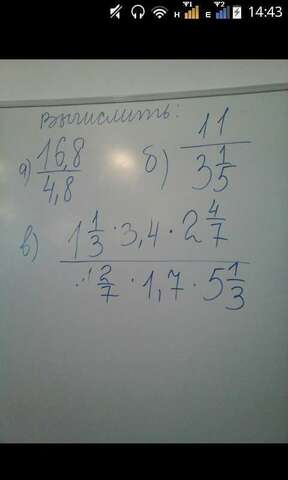 14:43
Вычислить:
а) 16,8/4,8 б) 11/3 1/5
в) 1 1/3 · 3,4 · 2 4/7 / 1 2/7 · 1,7 · 5 1/3